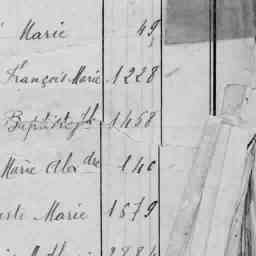 Marie 49
François Marie 1228
Baptiste 1458
Marie Alex dre 140
Marie 1579